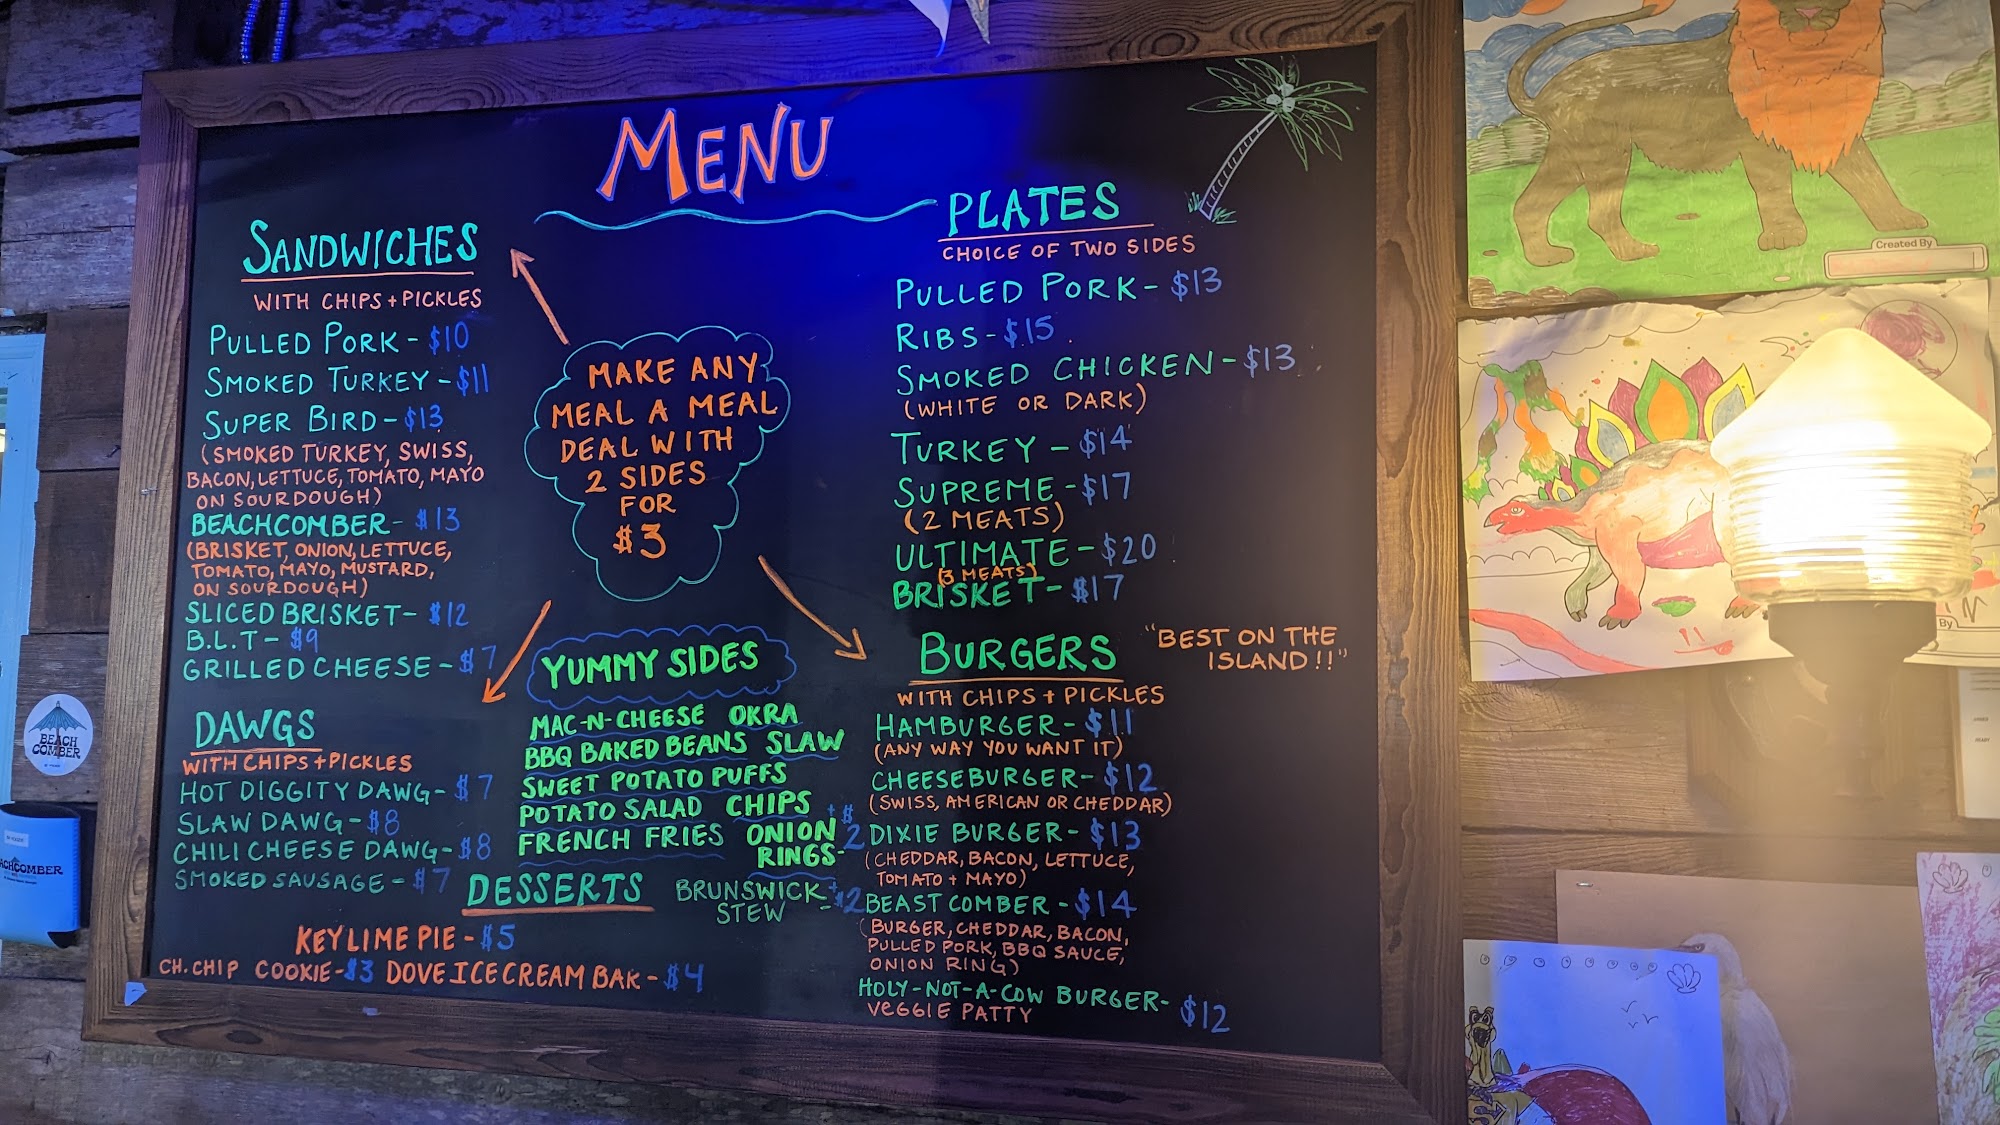 MENU
SANDWICHES
WITH CHIPS + PICKLES
PULLED PORK - $10
SMOKED TURKEY - $11
SUPER BIRD - $13
(SMOKED TURKEY, SWISS,
BACON, LETTUCE, TOMATO, MAYO
ON SOURDOUGH)
BEACHCOMBER - $13
(BRISKET, ONION, LETTUCE,
TOMATO, MAYO, MUSTARD,
ON SOURDOUGH)
SLICED BRISKET - $12
B.L.T - $9
GRILLED CHEESE - $7
DAWGS
WITH CHIPS + PICKLES
HOT DIGGITY DAWG - $7
SLAW DAWG - $8
CHILI CHEESE DAWG - $8
SMOKED SAUSAGE - $7
MAKE ANY
MEAL A MEAL
DEAL WITH
2 SIDES
FOR
$3
YUMMY SIDES
MAC-N-CHEESE OKRA
BBQ BAKED BEANS SLAW
SWEET POTATO PUFFS
POTATO SALAD CHIPS
FRENCH FRIES ONION
RINGS - +$2
BRUNSWICK
STEW - +$2
DESSERTS
KEY LIME PIE - $5
CH. CHIP COOKIE - $3 DOVE ICE CREAM BAR - $4
PLATES
CHOICE OF TWO SIDES
PULLED PORK - $13
RIBS - $15
SMOKED CHICKEN - $13
(WHITE OR DARK)
TURKEY - $14
SUPREME - $17
(2 MEATS)
ULTIMATE - $20
(3 MEATS)
BRISKET - $17
BURGERS
"BEST ON THE
ISLAND!!"
WITH CHIPS + PICKLES
HAMBURGER - $11
(ANY WAY YOU WANT IT)
CHEESEBURGER - $12
(SWISS, AMERICAN OR CHEDDAR)
DIXIE BURGER - $13
(CHEDDAR, BACON, LETTUCE,
TOMATO + MAYO)
BEAST COMBER - $14
(BURGER, CHEDDAR, BACON,
PULLED PORK, BBQ SAUCE,
ONION RING)
HOLY-NOT-A-COW BURGER - $12
VEGGIE PATTY
BEACH
COMBER
ACHCOMBER
Created By
By